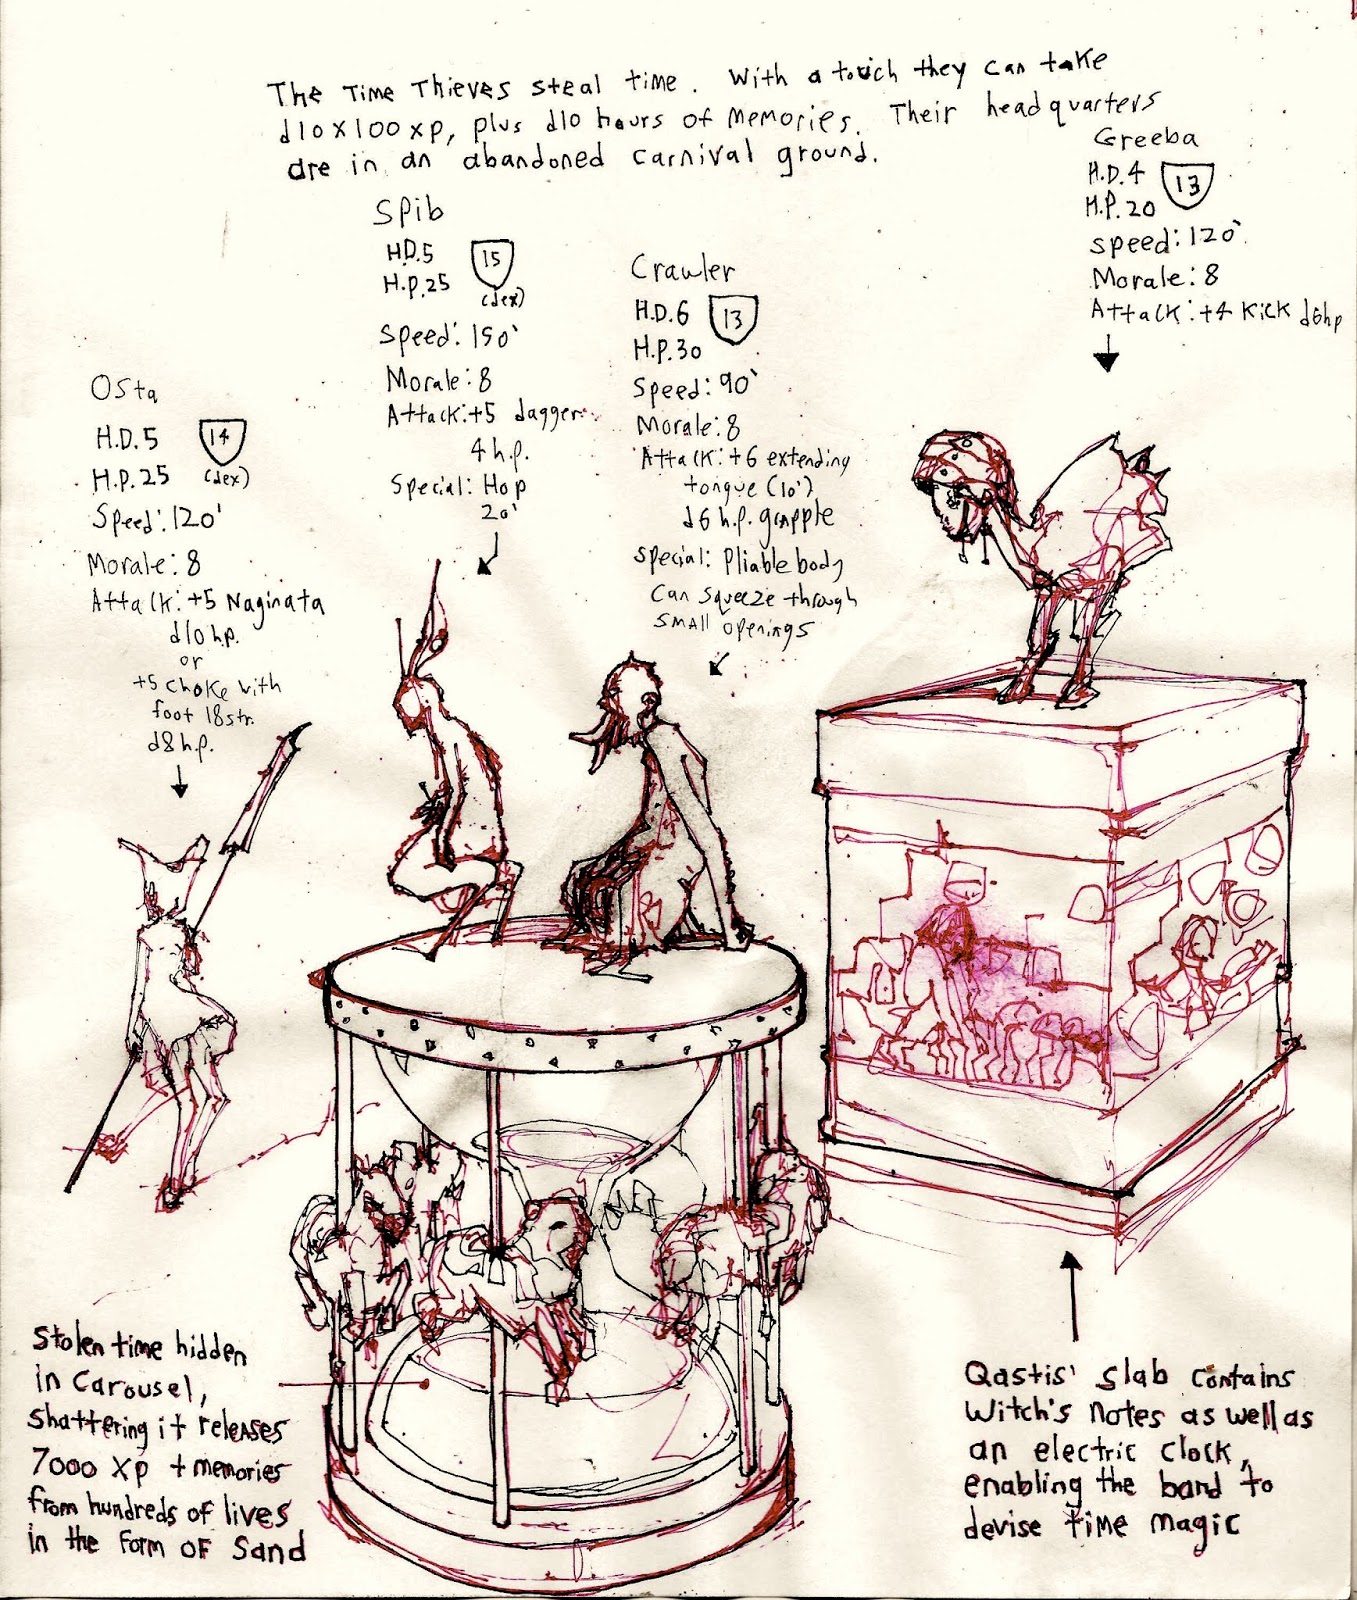 The Time Thieves steal time. With a touch they can take
d10x100xp, plus d10 hours of memories. Their headquarters
are in an abandoned carnival ground.
Greeba
H.D.4 13
H.P.20
speed: 120'
Morale: 8
Attack: +4 Kick d6hp
Spib
H.D.5 15
H.P.25 (dex)
Speed: 150'
Morale: 8
Attack: +5 dagger
4 h.p.
Special: Hop
20'
Crawler
H.D.6 13
H.P.30
Speed: 90'
Morale: 8
Attack: +6 extending
tongue (10')
d6 h.p. grapple
special: Pliable body
Can squeeze through
small openings
Osta
H.D.5 14
H.P.25 (dex)
Speed: 120'
Morale: 8
Attack: +5 Naginata
d10 h.p.
or
+5 choke with
foot 18str.
d8 h.p.
Stolen time hidden
in Carousel,
shattering it releases
7000 xp + memories
from hundreds of lives
in the form of Sand
Qastis' slab contains
Witch's notes as well as
an electric clock,
enabling the band to
devise time magic